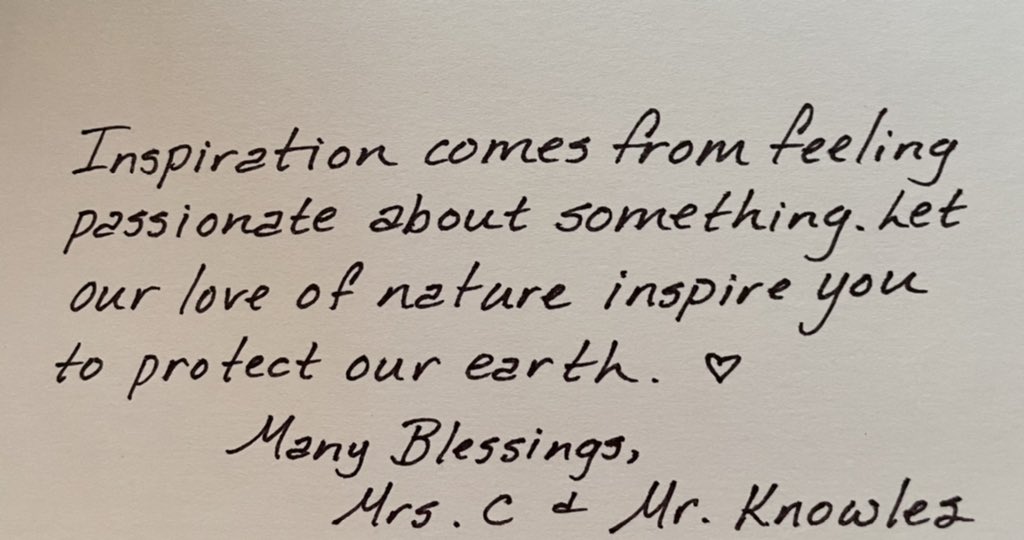 Inspiration comes from feeling
passionate about something. Let
our love of nature inspire you
to protect our earth. ♡
Many Blessings,
Mrs. C & Mr. Knowles